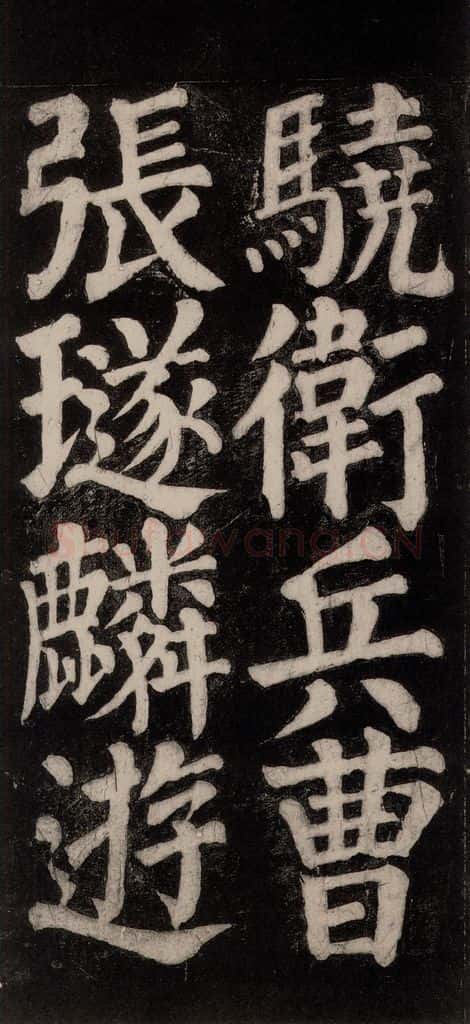 驍衛兵曹
張璲麟遊
Shufawang.CN